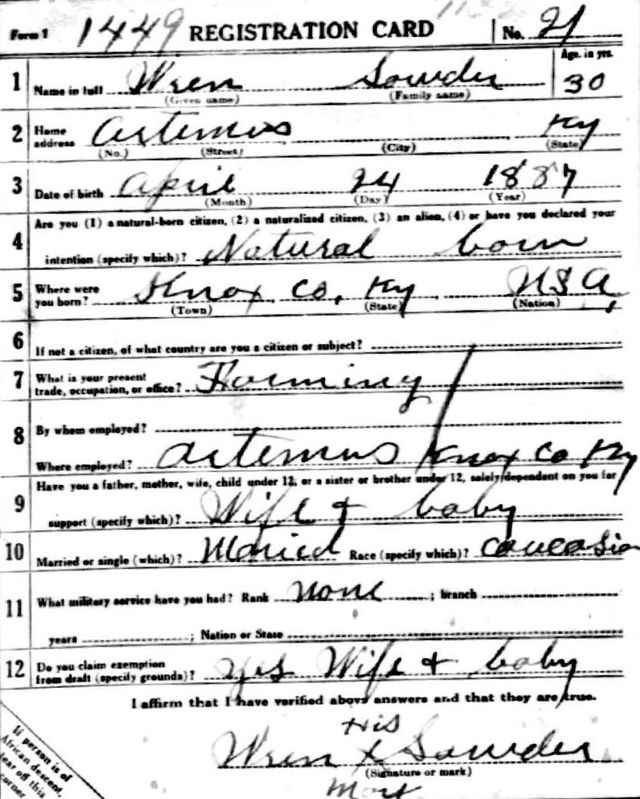 Form 1 1449 REGISTRATION CARD No. 21
Age, in yrs.
1 Name in full Wren Sowder 30
(Given name) (Family name)
2 Home address Artemus Ky
(No.) (Street) (City) (State)
3 Date of birth April 24 1887
(Month) (Day) (Year)
Are you (1) a natural-born citizen, (2) a naturalized citizen, (3) an alien, (4) or have you declared your
4 intention (specify which)? Natural born
5 Where were you born? Knox Co, Ky USA,
(Town) (State) (Nation)
6 If not a citizen, of what country are you a citizen or subject?
7 What is your present trade, occupation, or office? Farming
8 By whom employed?
Where employed? Artemus Knox Co Ky
Have you a father, mother, wife, child under 12, or a sister or brother under 12, solely dependent on you for
9 support (specify which)? Wife + baby
10 Married or single (which)? Maried Race (specify which)? Caucasian
11 What military service have you had? Rank None ; branch
years ; Nation or State
12 Do you claim exemption from draft (specify grounds)? Yes Wife + baby
I affirm that I have verified above answers and that they are true.
His
Wren X Sowder
(Signature or mark)
Mark
If person is of
African descent,
tear off this
corner